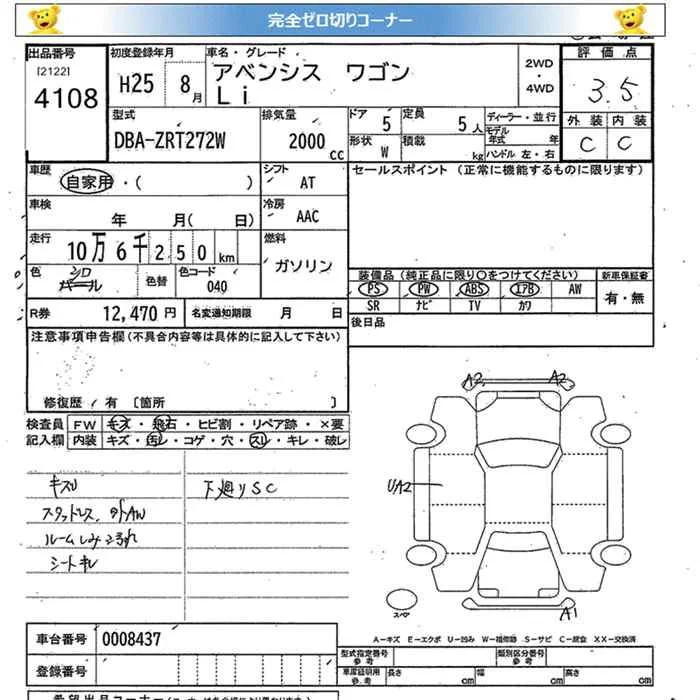 完全ゼロ切りコーナー
出品番号
[2122]
4108
初度登録年月
H25 8月
車名・グレード
アベンシス ワゴン
Li
2WD
・
4WD
評価点
3.5
外装 内装
C C
型式
DBA-ZRT272W
排気量
2000 cc
ドア 5
定員 5人
形状 W
積載 kg
ディーラー・並行
モデル年式 年
ハンドル 左・右
車歴
自家用・( )
シフト
AT
セールスポイント (正常に機能するものに限ります)
車検
年 月( 日)
冷房
AAC
走行
10万6千250km
燃料
ガソリン
色
シロ
パール
色替
色コード
040
装備品(純正品に限り〇をつけてください)
新車保証書
PS PW ABS エアB AW
SR ナビ TV カワ
有・無
R券 12,470円
名変通知期限 月 日
後日品
注意事項申告欄(不具合内容等は具体的に記入して下さい)
修復歴 有 〔箇所 〕
検査員記入欄
FW キズ・飛石・ヒビ割・リペア跡・×要
内装 キズ・汚レ・コゲ・穴・スレ・キレ・破レ
キズリ
スタッドレス、外AW
ルームしみ、汚れ
シートキレ
下廻りSC
A2 A2
UA2
スペア
A1
A―キズ E―エクボ U―凹み W―補修跡 S―サビ C―腐食 XX―交換済
車台番号 0008437
登録番号
型式指定番号 参考
類別区分番号 参考
車庫証明用 参考
長さ cm
幅 cm
高さ cm